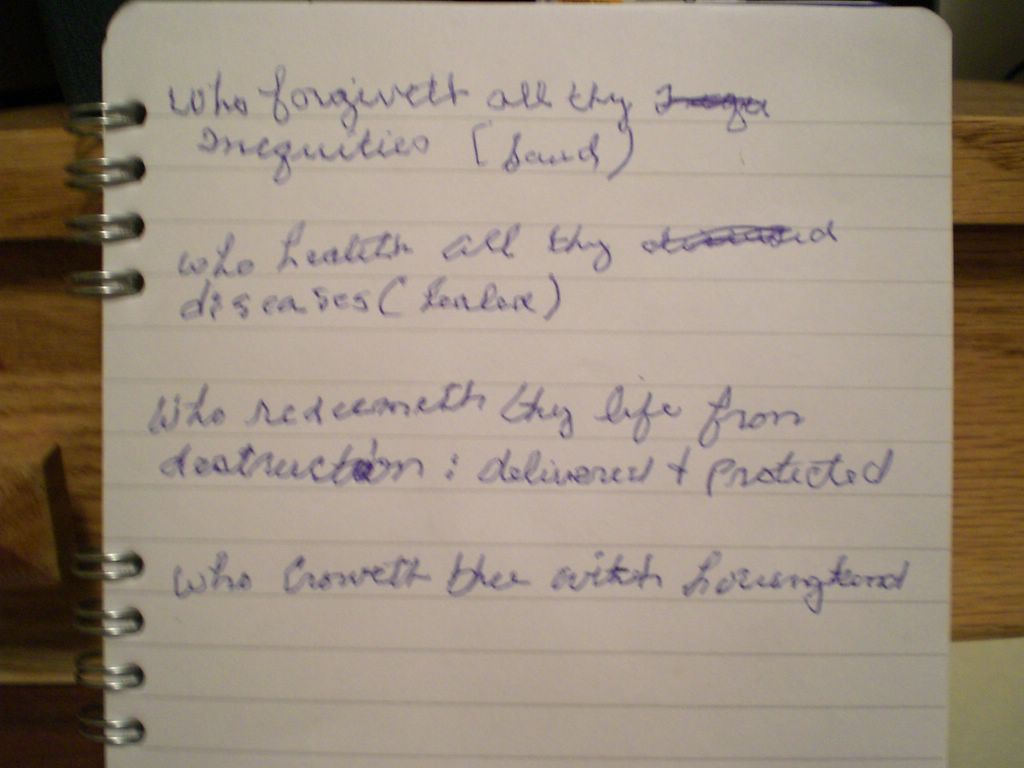 who forgiveth all thy
Inequities (saved)
who healeth all thy
diseases (healed)
Who redeemeth thy life from
destruction : delivered + protected
who Croweth thee with